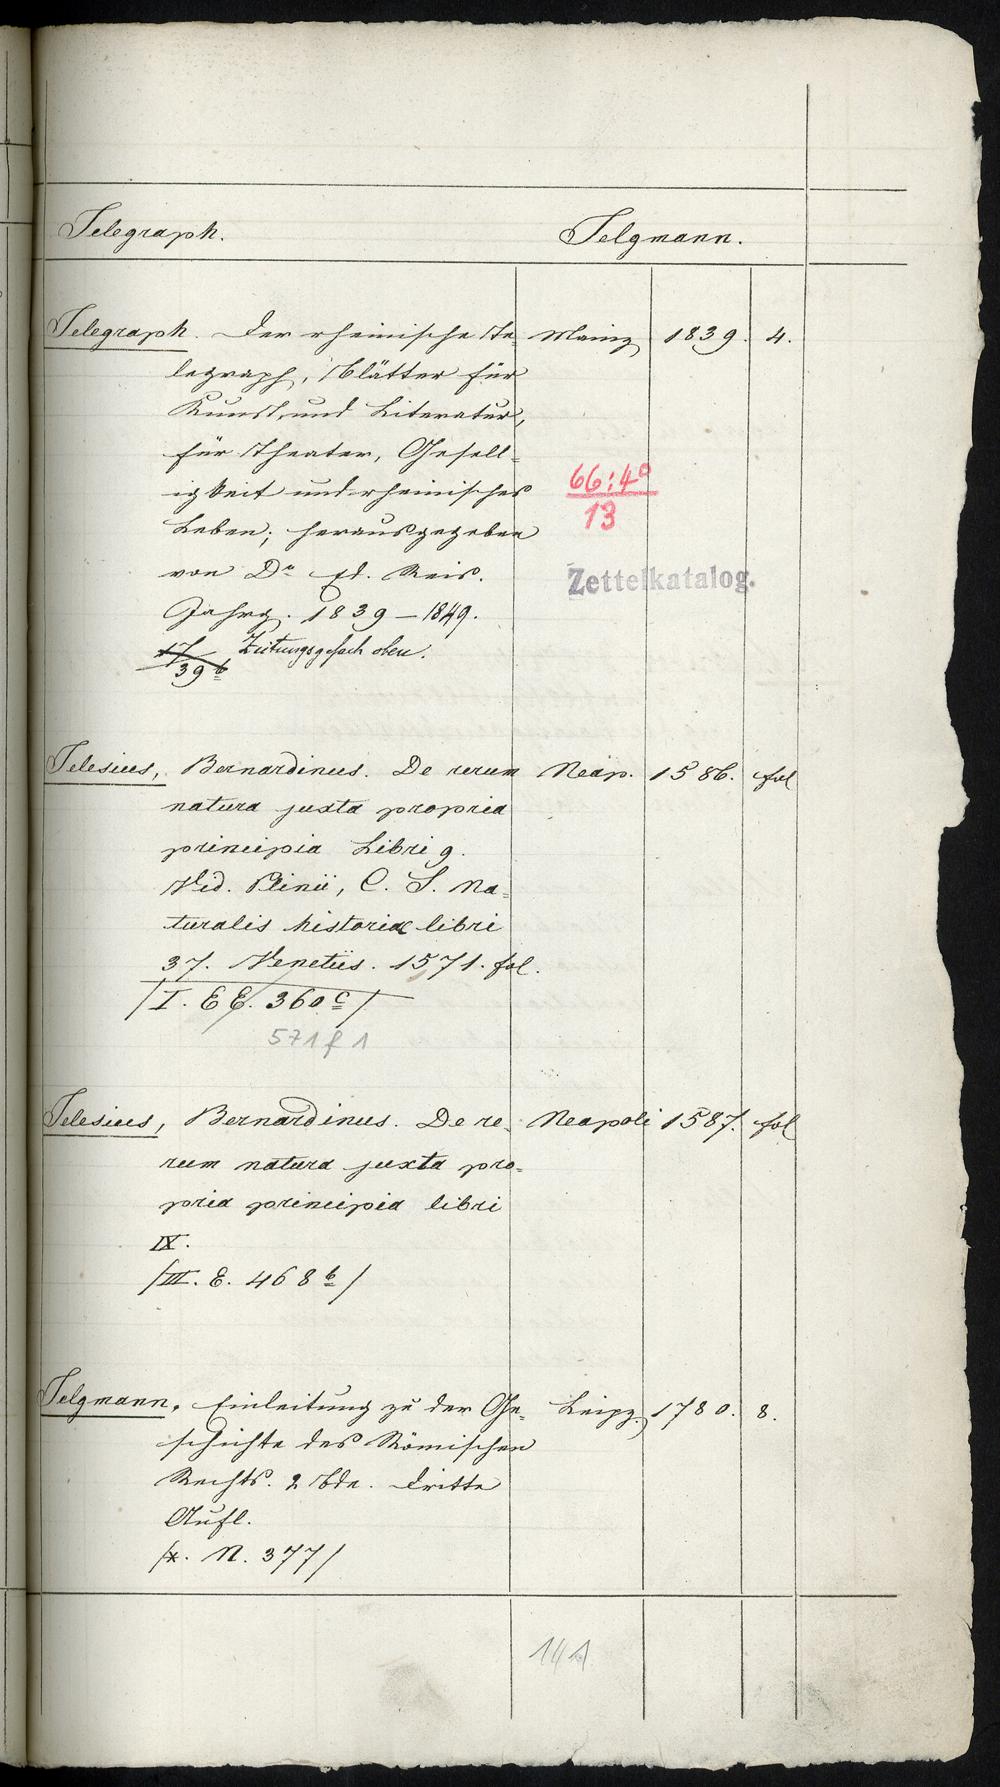 Telegraph. Telgmann.
Telegraph. Der rheinische Te- Mainz 1839. 4.
legraph, Blätter für
Kunst und Literatur,
für Theater, Gesell-
igkeit und rheinisches
66:4°
13
Leben; herausgegeben
von Dr. Ed. Reis.
Zettelkatalog.
Jahrg. 1839–1849.
17 Zeitungsgefach oben.
39 b
Telesius, Bernardinus. De rerum Neap. 1586. fol
natura juxta propria
principia Libri 9.
Vid. Plinii, C. S. Na-
turalis historiae libri
37. Venetiis. 1571. fol.
/I. EE. 360 c/
571 f 1
Telesius, Bernardinus. De re- Neapoli 1587. fol
rum natura juxta pro-
pria principia libri
IX.
/III. E. 468 b/
Telgmann, Einleitung zu der Ge- Leipz. 1780. 8.
schichte des Römischen
Rechts. 2 Bde. Dritte
Aufl.
/x. N. 377/
141